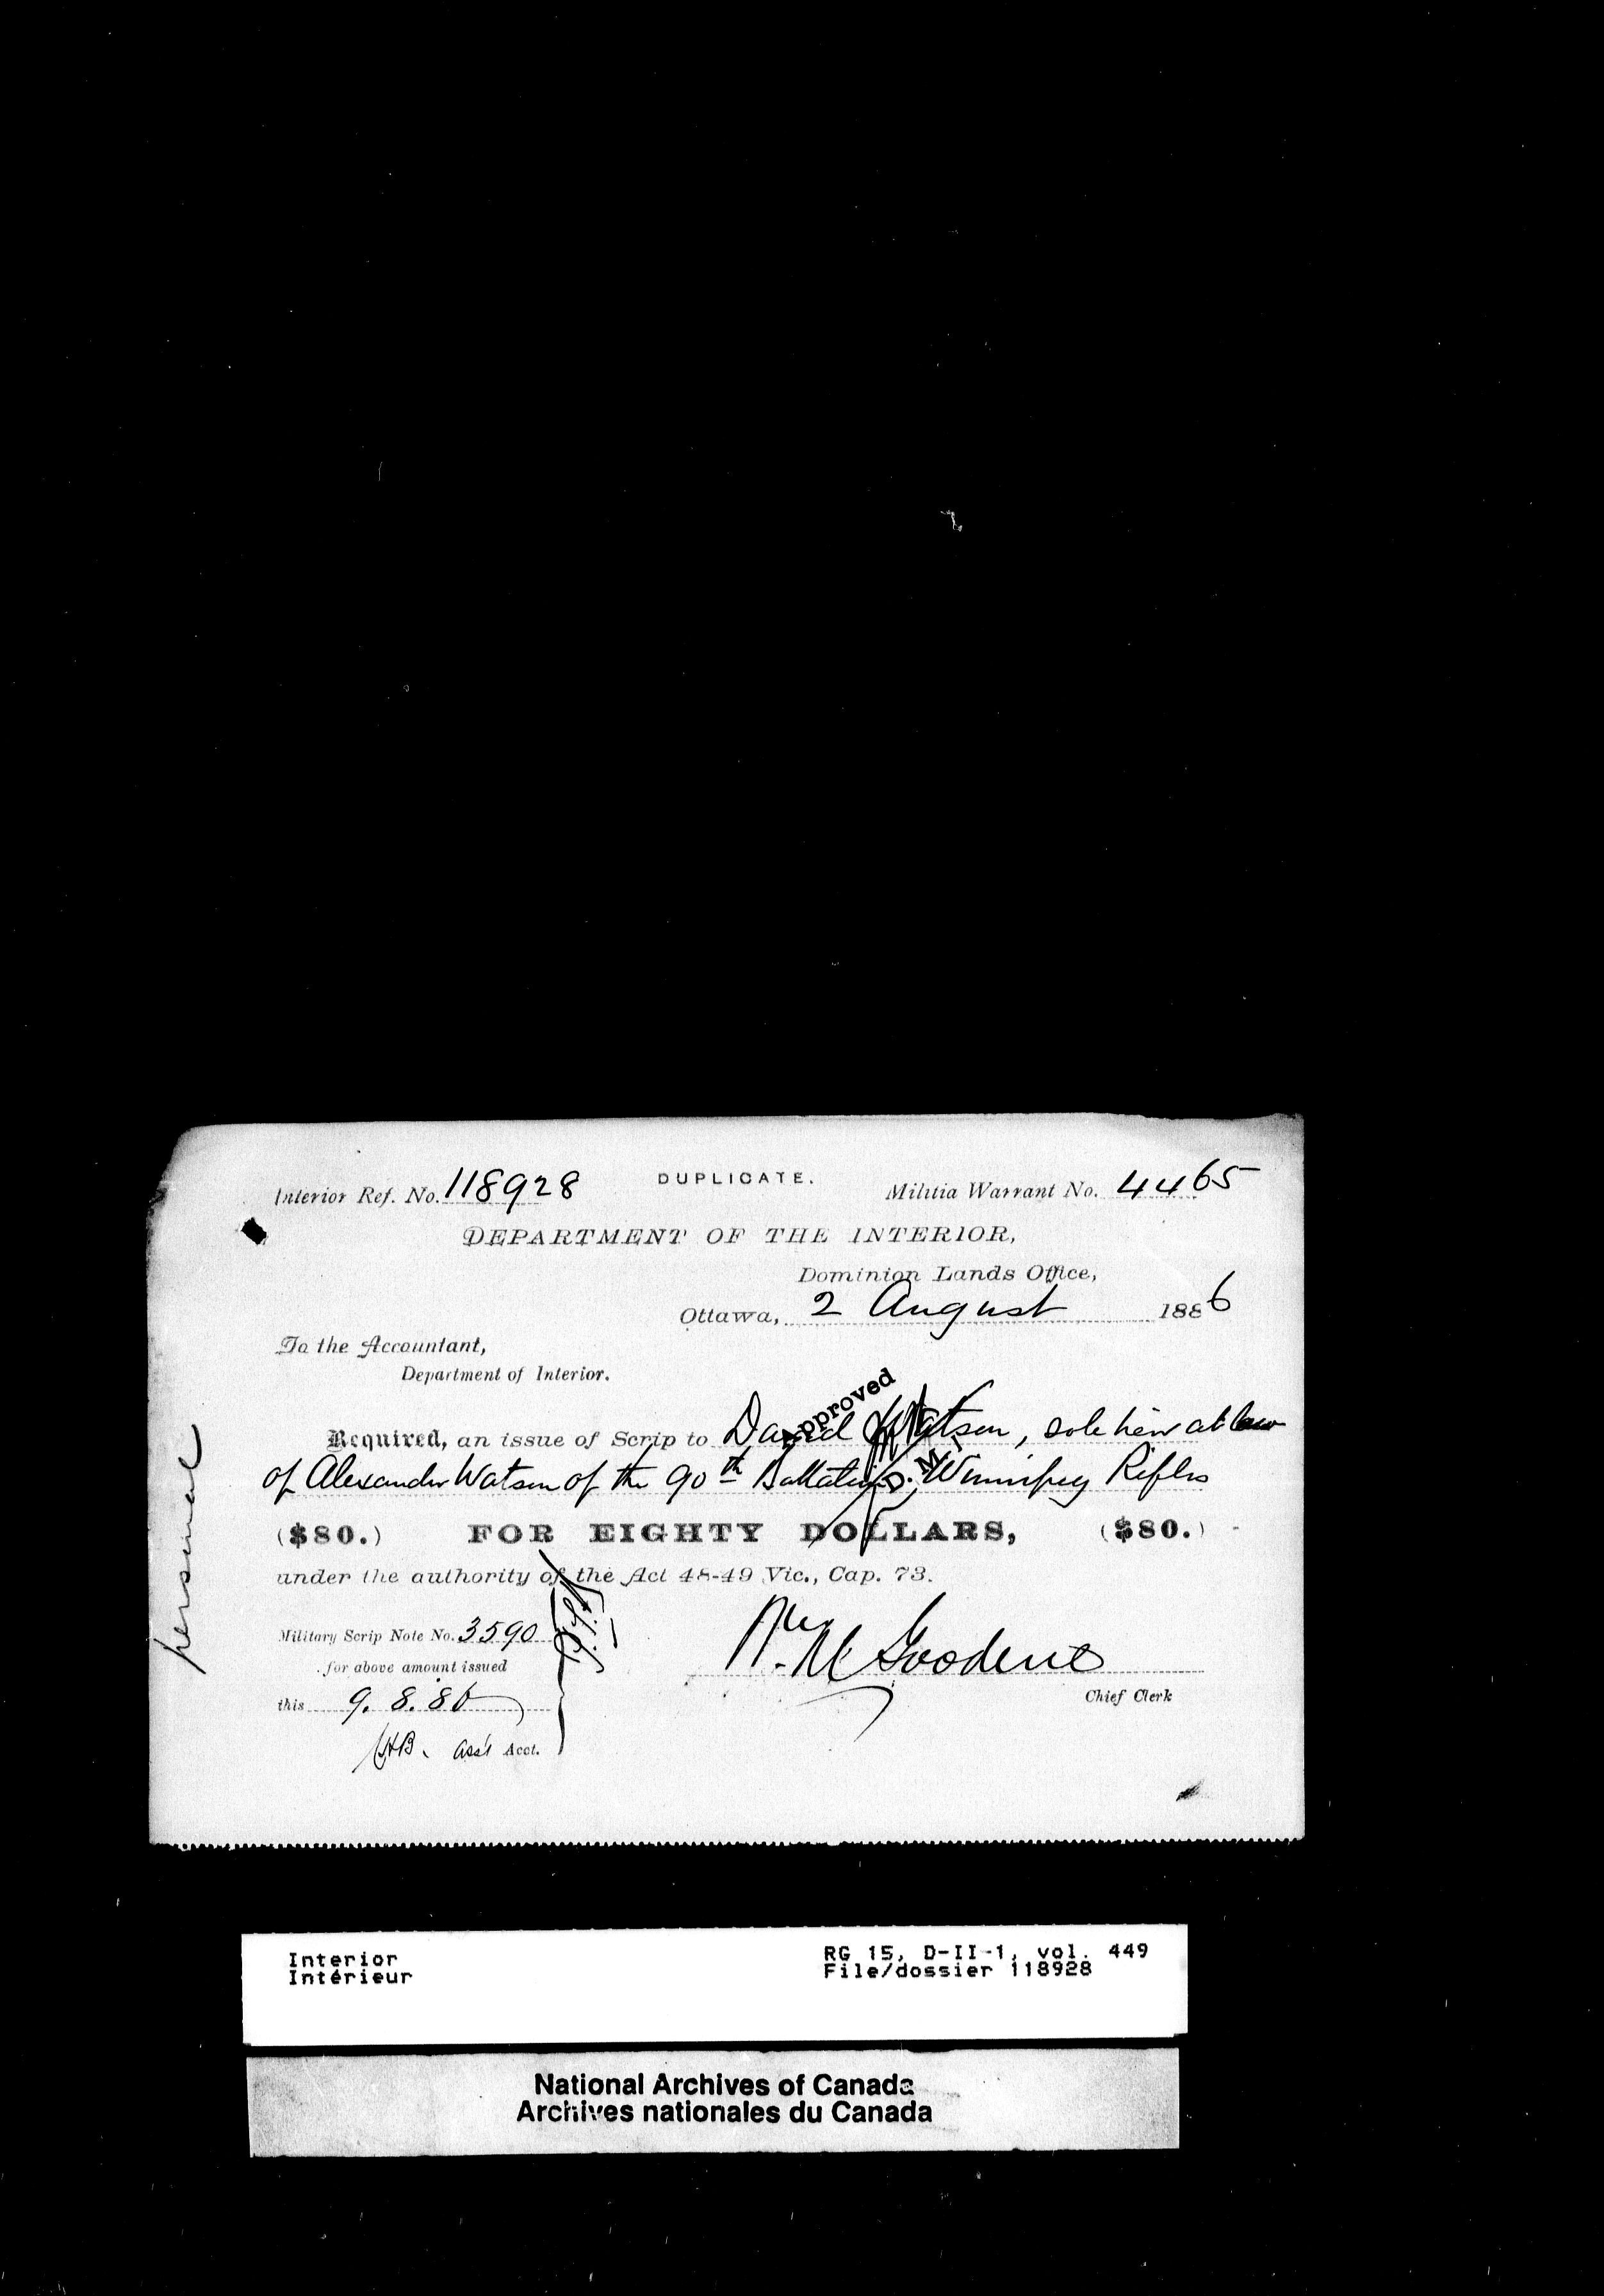 Interior Ref. No. 118928 DUPLICATE. Militia Warrant No. 4465
DEPARTMENT OF THE INTERIOR,
Dominion Lands Office,
Ottawa, 2 August 1886
To the Accountant,
Department of Interior.
Approved
Required, an issue of Scrip to David Watson, sole heir at law
of Alexander Watson of the 90th Battalion Winnipeg Rifles
($80.) FOR EIGHTY DOLLARS, ($80.)
under the authority of the Act 48-49 Vic., Cap. 73.
personal
Military Scrip Note No. 3590
for above amount issued
this 9. 8. 86
Chief Clerk
Ass't Acct.
Interior
Intérieur
RG 15, D-II-1, vol. 449
File/dossier 118928
National Archives of Canada
Archives nationales du Canada